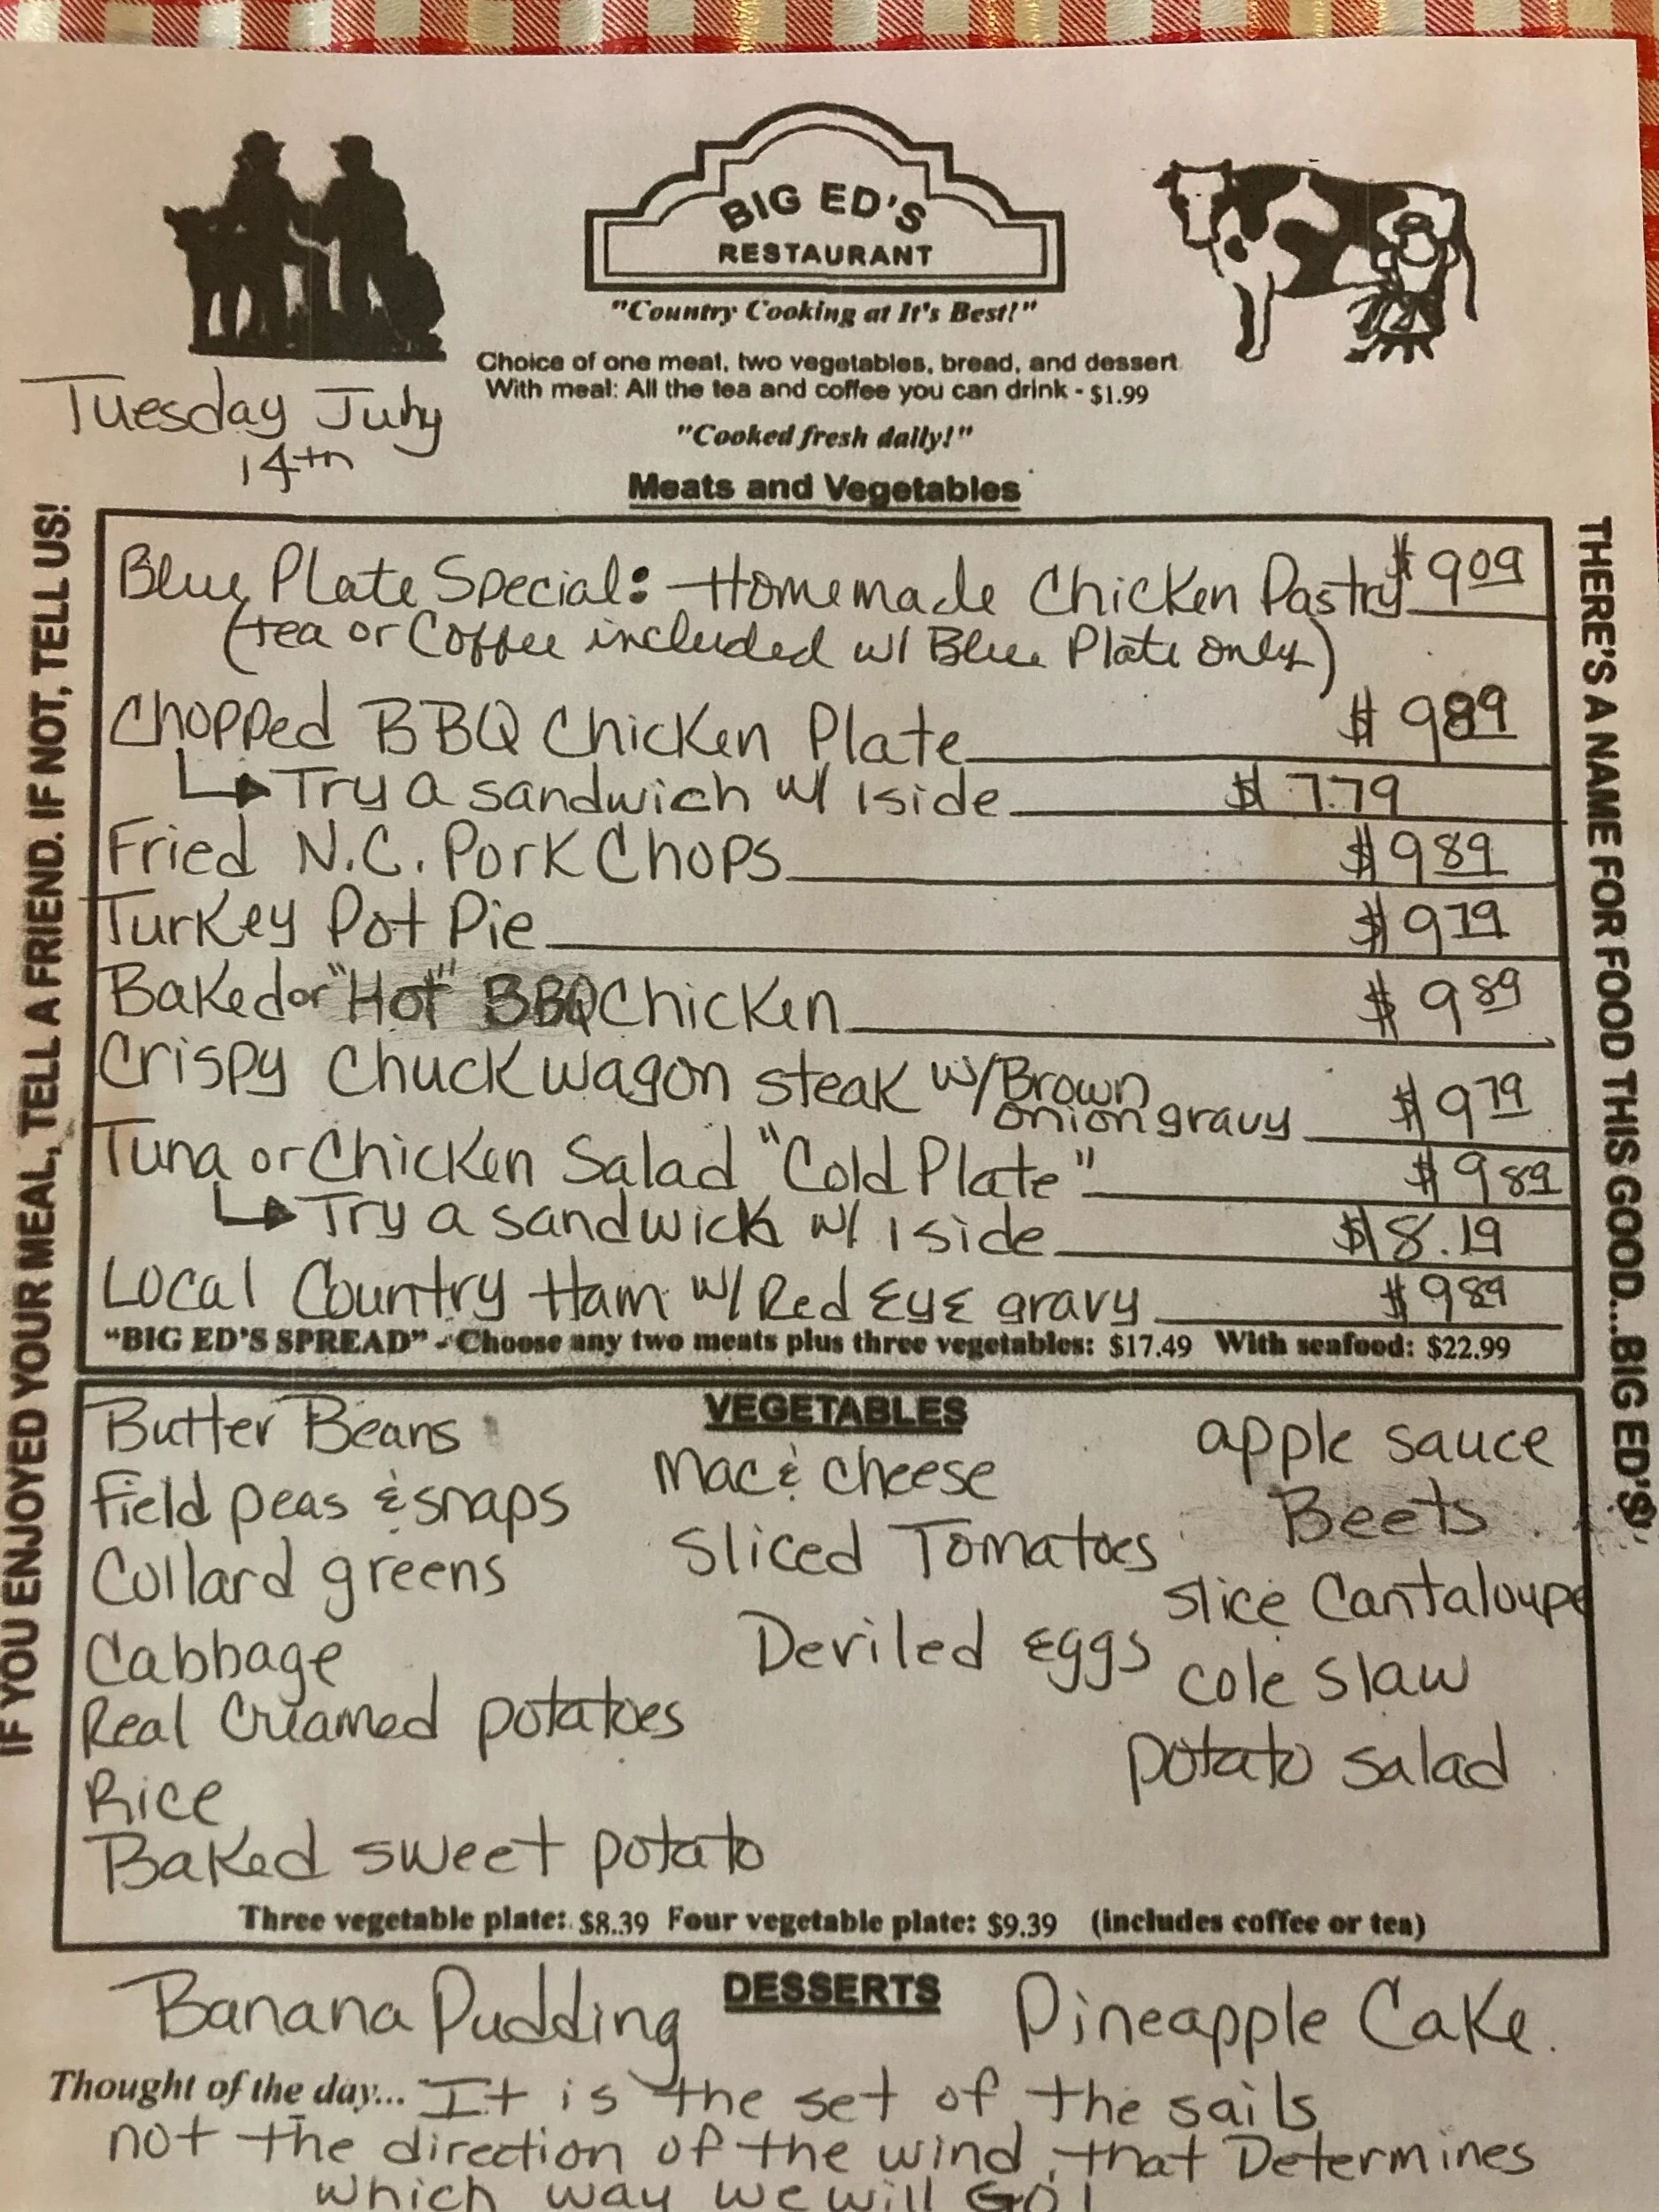 BIG ED'S
RESTAURANT
"Country Cooking at It's Best!"
Choice of one meat, two vegetables, bread, and dessert
With meal: All the tea and coffee you can drink - $1.99
"Cooked fresh daily!"
Tuesday July
14th
Meats and Vegetables
IF YOU ENJOYED YOUR MEAL, TELL A FRIEND. IF NOT, TELL US!
THERE'S A NAME FOR FOOD THIS GOOD...BIG ED'S
Blue Plate Special: Homemade Chicken Pastry $9.09
(tea or Coffee included w/ Blue Plate only)
Chopped BBQ Chicken Plate $9.89
Try a sandwich w/ 1 side $7.79
Fried N.C. Pork Chops $9.89
Turkey Pot Pie $9.79
Baked or "Hot" BBQ Chicken $9.89
Crispy Chuckwagon steak w/ Brown onion gravy $9.79
Tuna or Chicken Salad "Cold Plate" $9.89
Try a sandwick w/ 1 side $8.19
Local Country Ham w/ Red Eye gravy $9.89
"BIG ED'S SPREAD" - Choose any two meats plus three vegetables: $17.49 With seafood: $22.99
VEGETABLES
Butter Beans
Field peas & snaps
Collard greens
Cabbage
Real Creamed potatoes
Rice
Baked sweet potato
Mac & cheese
Sliced Tomatoes
Deviled Eggs
apple sauce
Beets
slice Cantaloupe
cole slaw
potato salad
Three vegetable plate: $8.39 Four vegetable plate: $9.39 (includes coffee or tea)
DESSERTS
Banana Pudding Pineapple Cake.
Thought of the day... It is the set of the sails
not the direction of the wind, that Determines
which way we will GO!